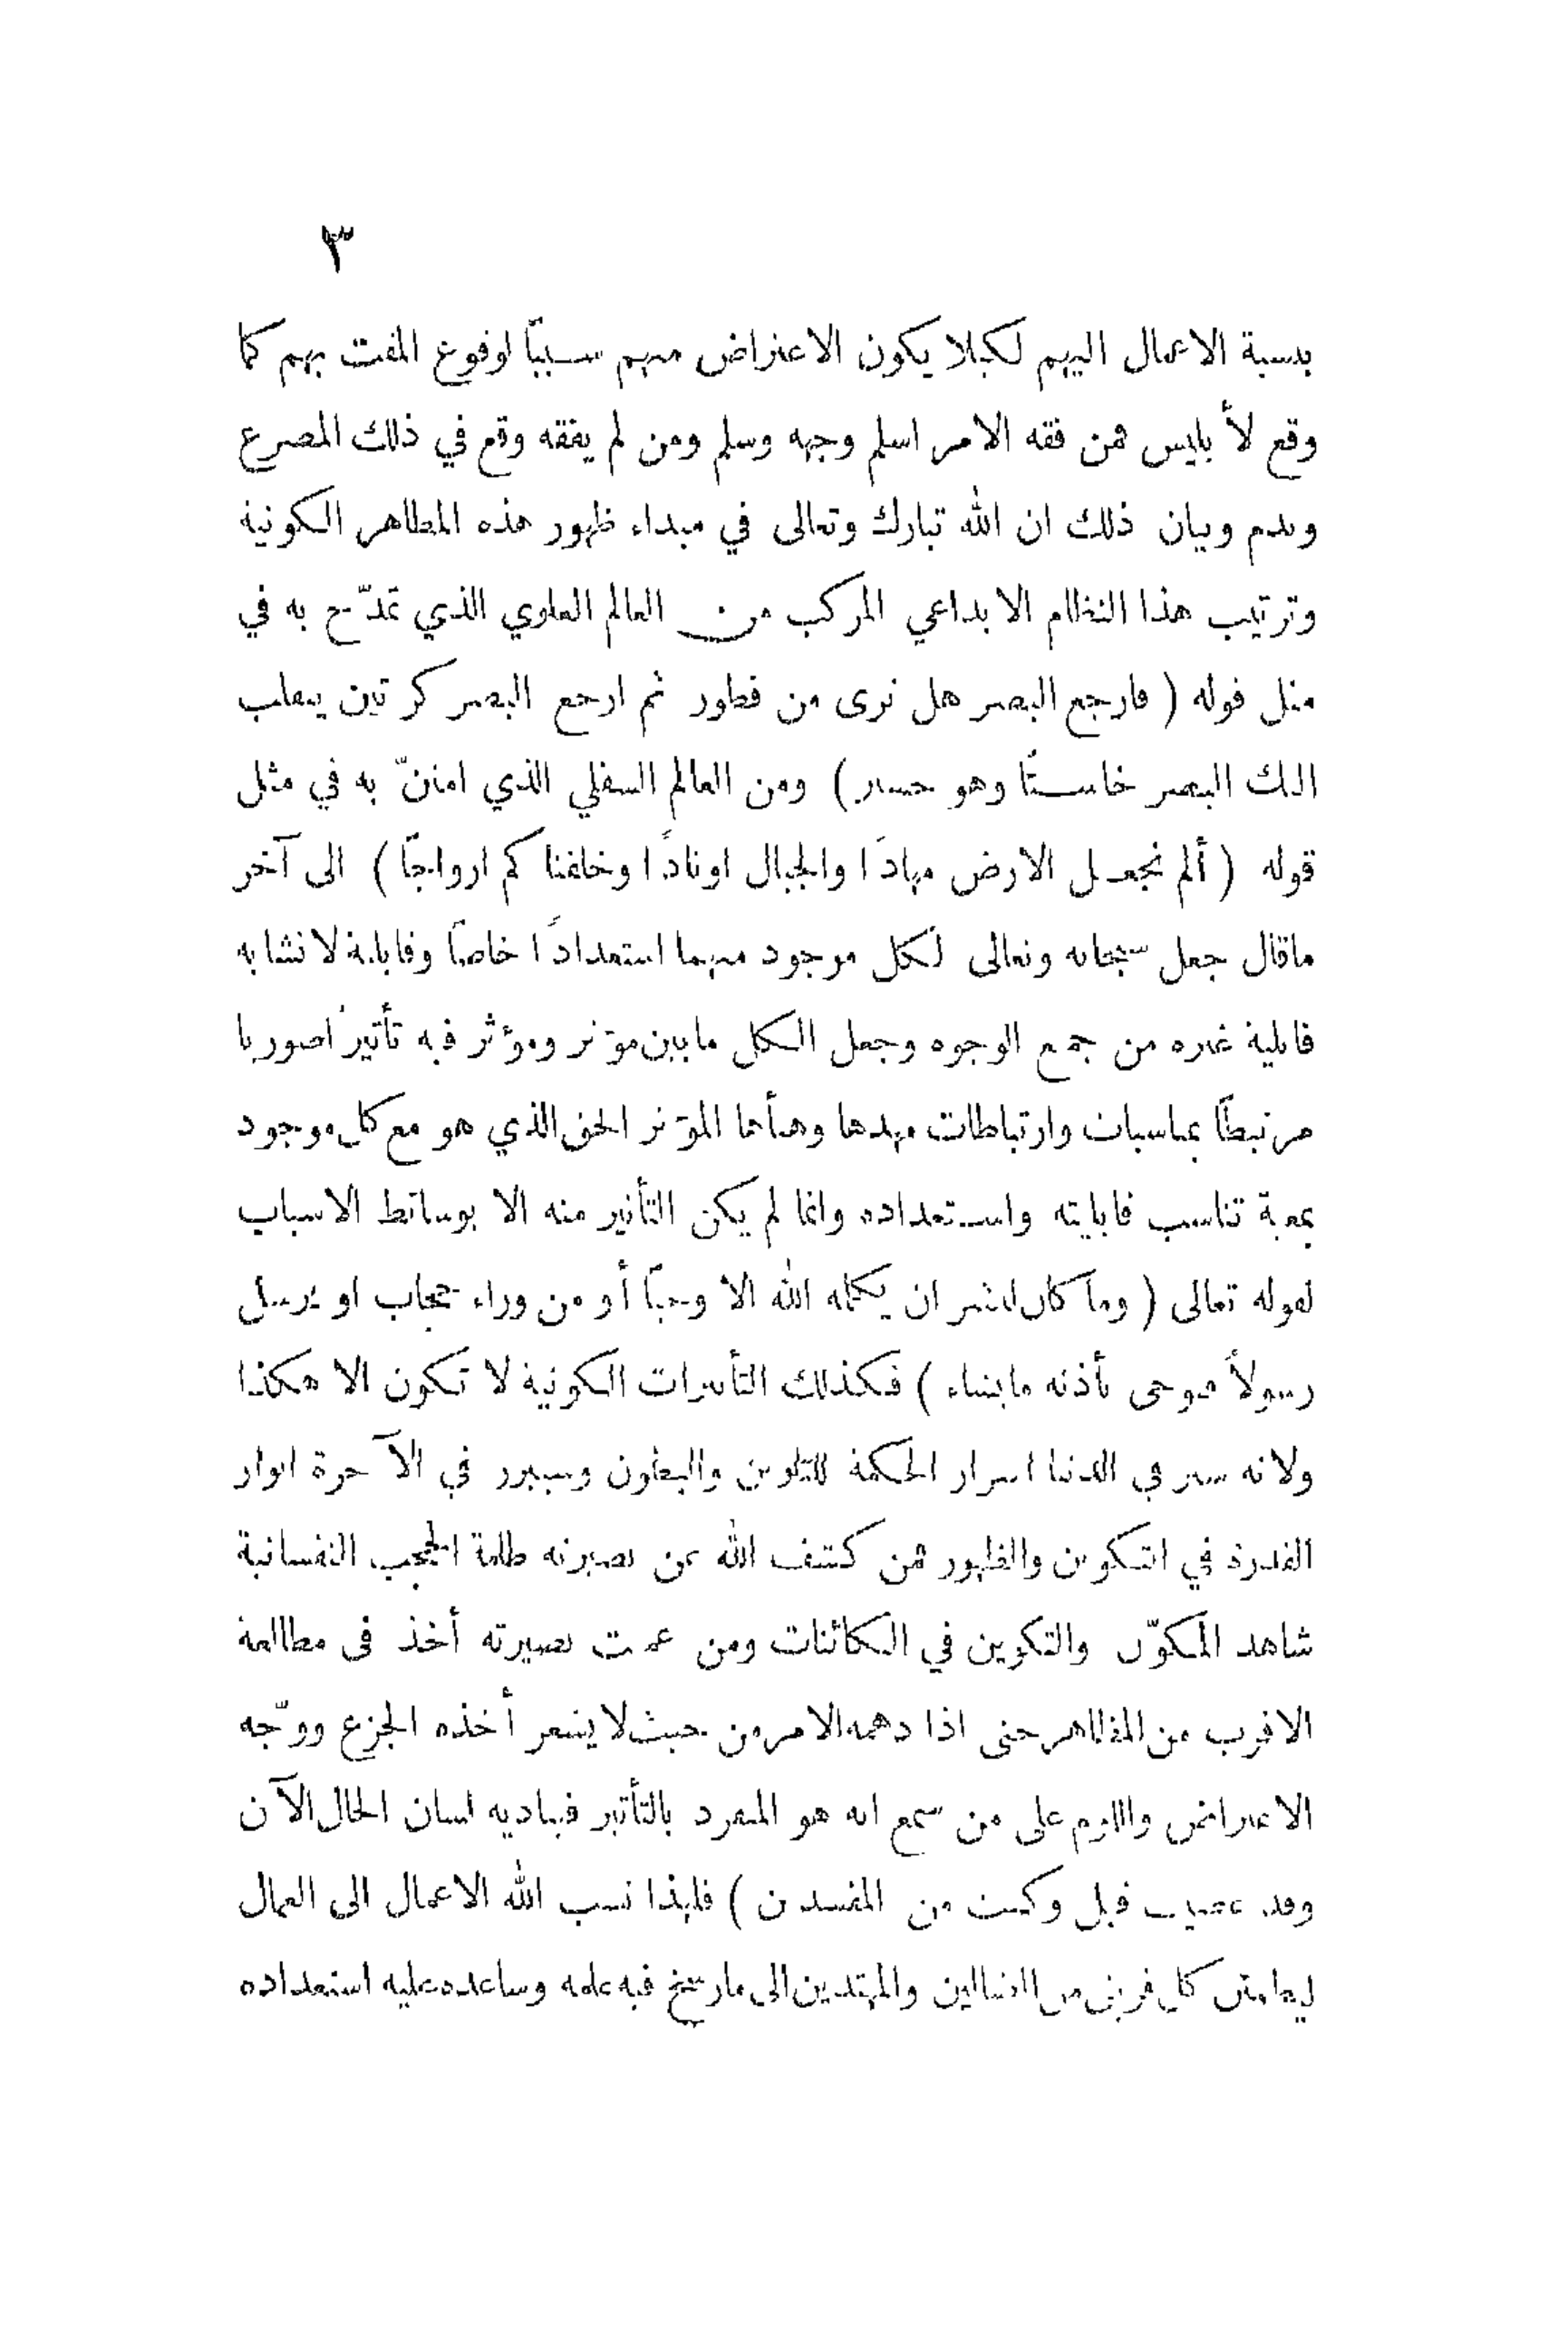 ٣
بنسبة الاعمال اليهم لكيلا يكون الاعتراض منهم سببًا لوقوع المقت بهم كما
وقع لأ بليس فمن فقه الامر اسلم وجهه وسلم ومن لم يفقه وقع في ذلك المصرع
وندم وبيان ذلك ان الله تبارك وتعالى في مبداء ظهور هذه المظاهر الكونية
وترتيب هذا النظام الابداعي المركب من العالم العلوي الذي تمدّح به في
مثل قوله ( فارجع البصر هل ترى من فطور ثم ارجع البصر كرتين ينقلب
اليك البصر خاسئًا وهو حسير ) ومن العالم السفلي الذي امتنّ به في مثل
قوله ( ألم نجعل الارض مهادًا والجبال اوتادًا وخلقناكم ازواجًا ) الى آخر
ماقال جعل سبحانه وتعالى لكل موجود منهما استعدادًا خاصًا وقابلية لا تشابه
قابلية غيره من جميع الوجوه وجعل الكل مابين مؤثر ومؤثر فيه تأثيرًا صوريا
مرتبطًا بمناسبات وارتباطات مهدها وهيأها المؤثر الحق الذي هو مع كل موجود
بمعية تناسب قابليته واستعداده وانما لم يكن التأثير منه الا بوسائط الاسباب
لقوله تعالى ( وما كان لبشر ان يكلمه الله الا وحيًا أو من وراء حجاب او يرسل
رسولاً فيوحى بأذنه مايشاء ) فكذلك التأثيرات الكونية لا تكون الا هكذا
ولانه ستر في الدنيا اسرار الحكمة للتلوين والبطون وسيبرز في الآخرة انوار
القدرة في التكوين والظهور فمن كشف الله عن بصيرته ظلمة الحجب النفسانية
شاهد المكوّن والتكوين في الكائنات ومن عميت بصيرته أخذ فى مطالعة
الاقرب من المظاهر حتى اذا دهمه الامر من حيث لا يشعر أخذه الجزع ووّجه
الاعتراض واللوم على من سمع انه هو المنفرد بالتأثير فيناديه لسان الحال الآن
وقد عصيت قبل وكنت من المفسدين ) فلهذا نسب الله الاعمال الى العمال
ليطمئن كل فريق من الضالين والمهتدين الى مارسخ فيه علمه وساعده عليه استعداده